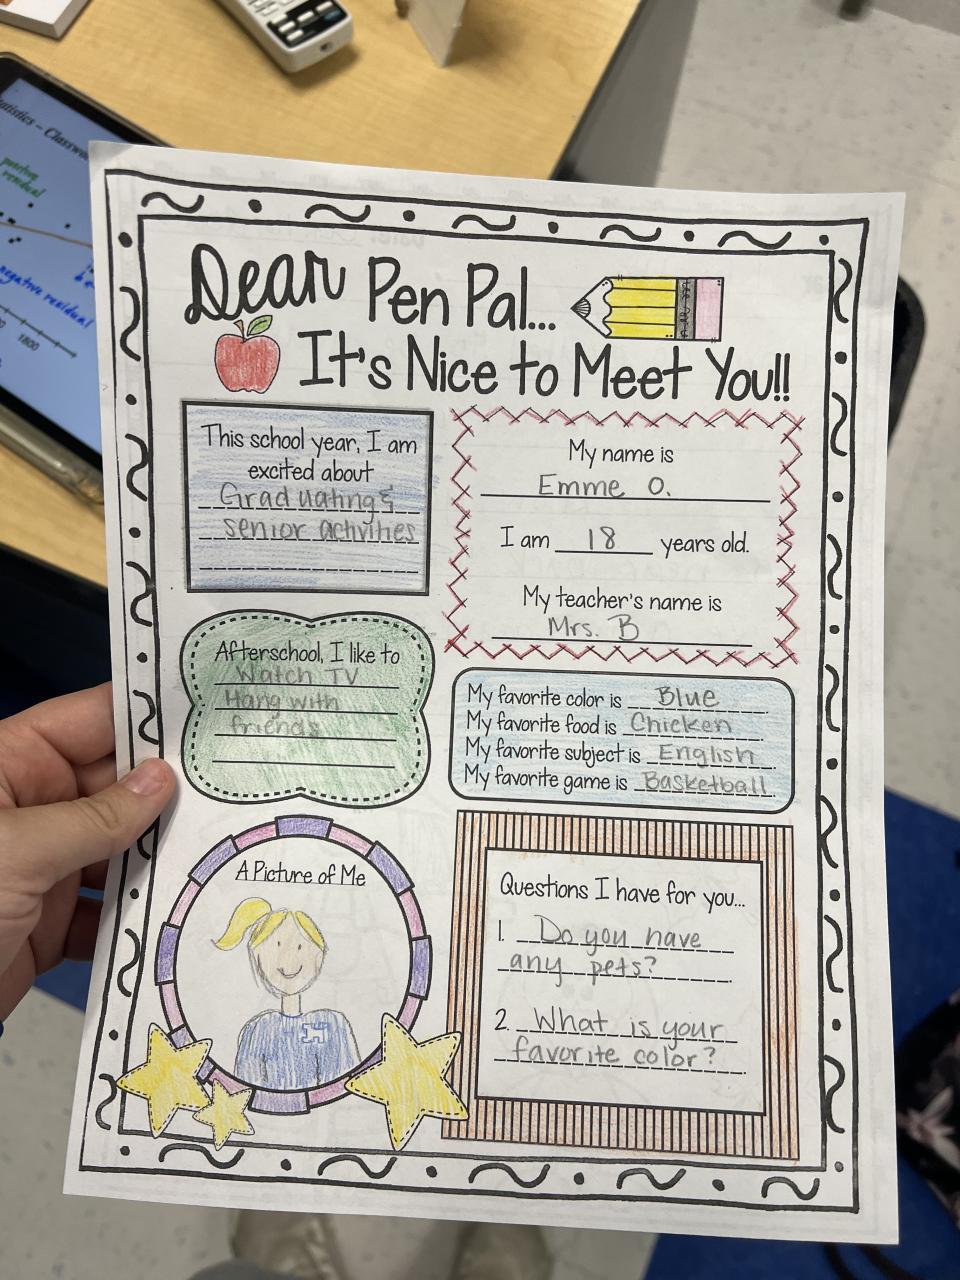 Dear Pen Pal...
It's Nice to Meet You!!
This school year, I am
excited about
Graduating &
senior activities
My name is
Emme O.
I am 18 years old.
My teacher's name is
Mrs. B
Afterschool, I like to
Watch TV
Hang with
friends
My favorite color is Blue.
My favorite food is Chicken.
My favorite subject is English.
My favorite game is Basketball.
A Picture of Me
Questions I have for you...
1. Do you have
any pets?
2. What is your
favorite color?
negative residual
1800